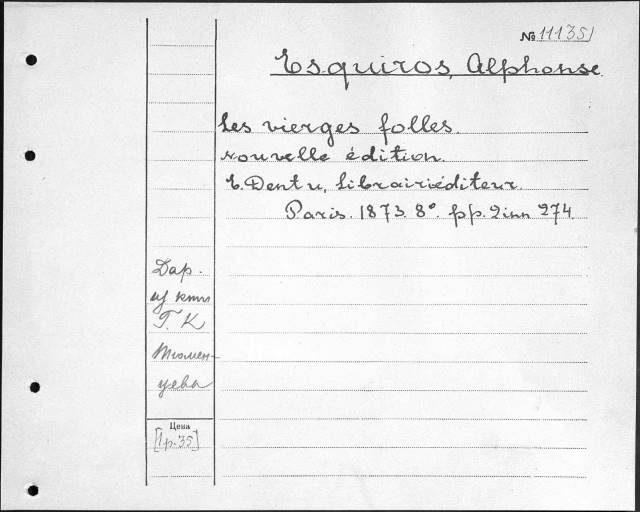 № 11135
Esquiros, Alphonse.
Les vierges folles.
Nouvelle édition.
E. Dentu, Librairiéditeur.
Paris. 1873. 8°. pp. 2inn 274.
Дар.
из книг
Г. К
Тюмен-
цева
Цена
[1 р. 35]